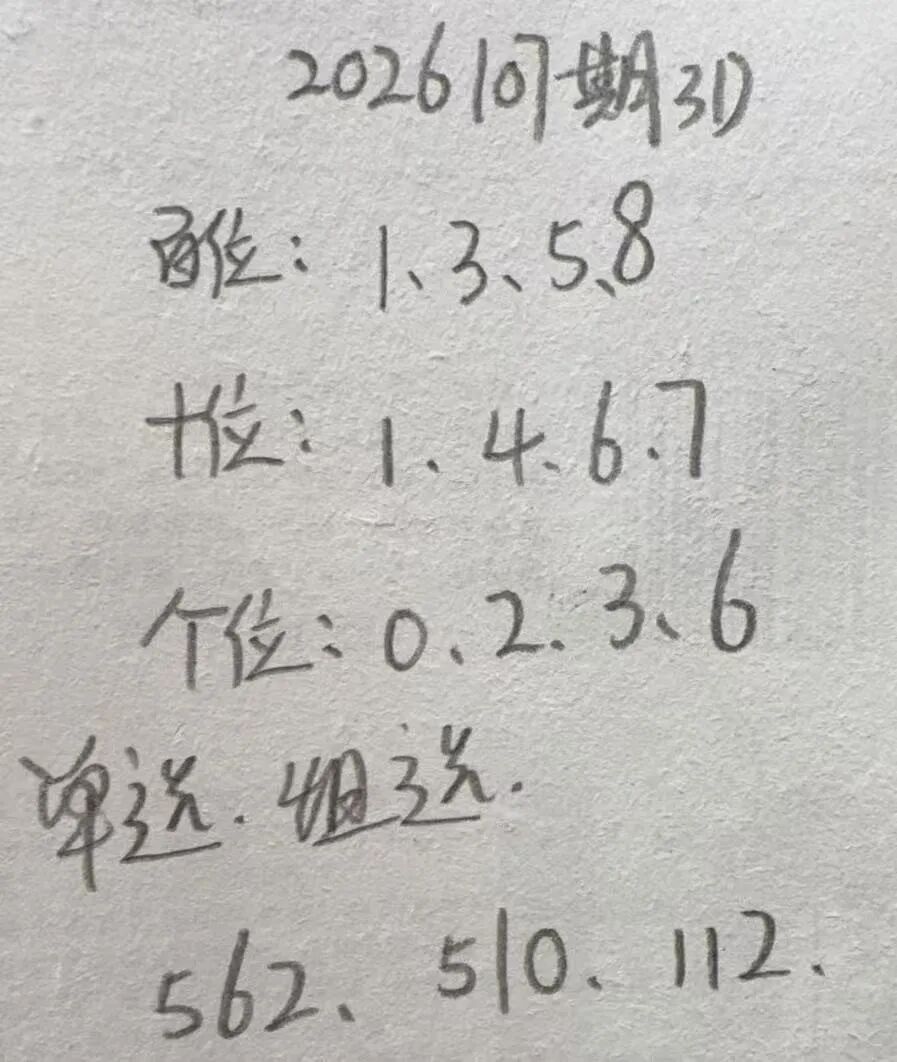 2026107期3D
百位：1、3、5、8
十位：1、4、6、7
个位：0、2、3、6
单选、组选.
562、510、112、